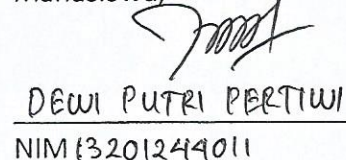 DEWI PUTRI PERTIWI
NIM 13201244011